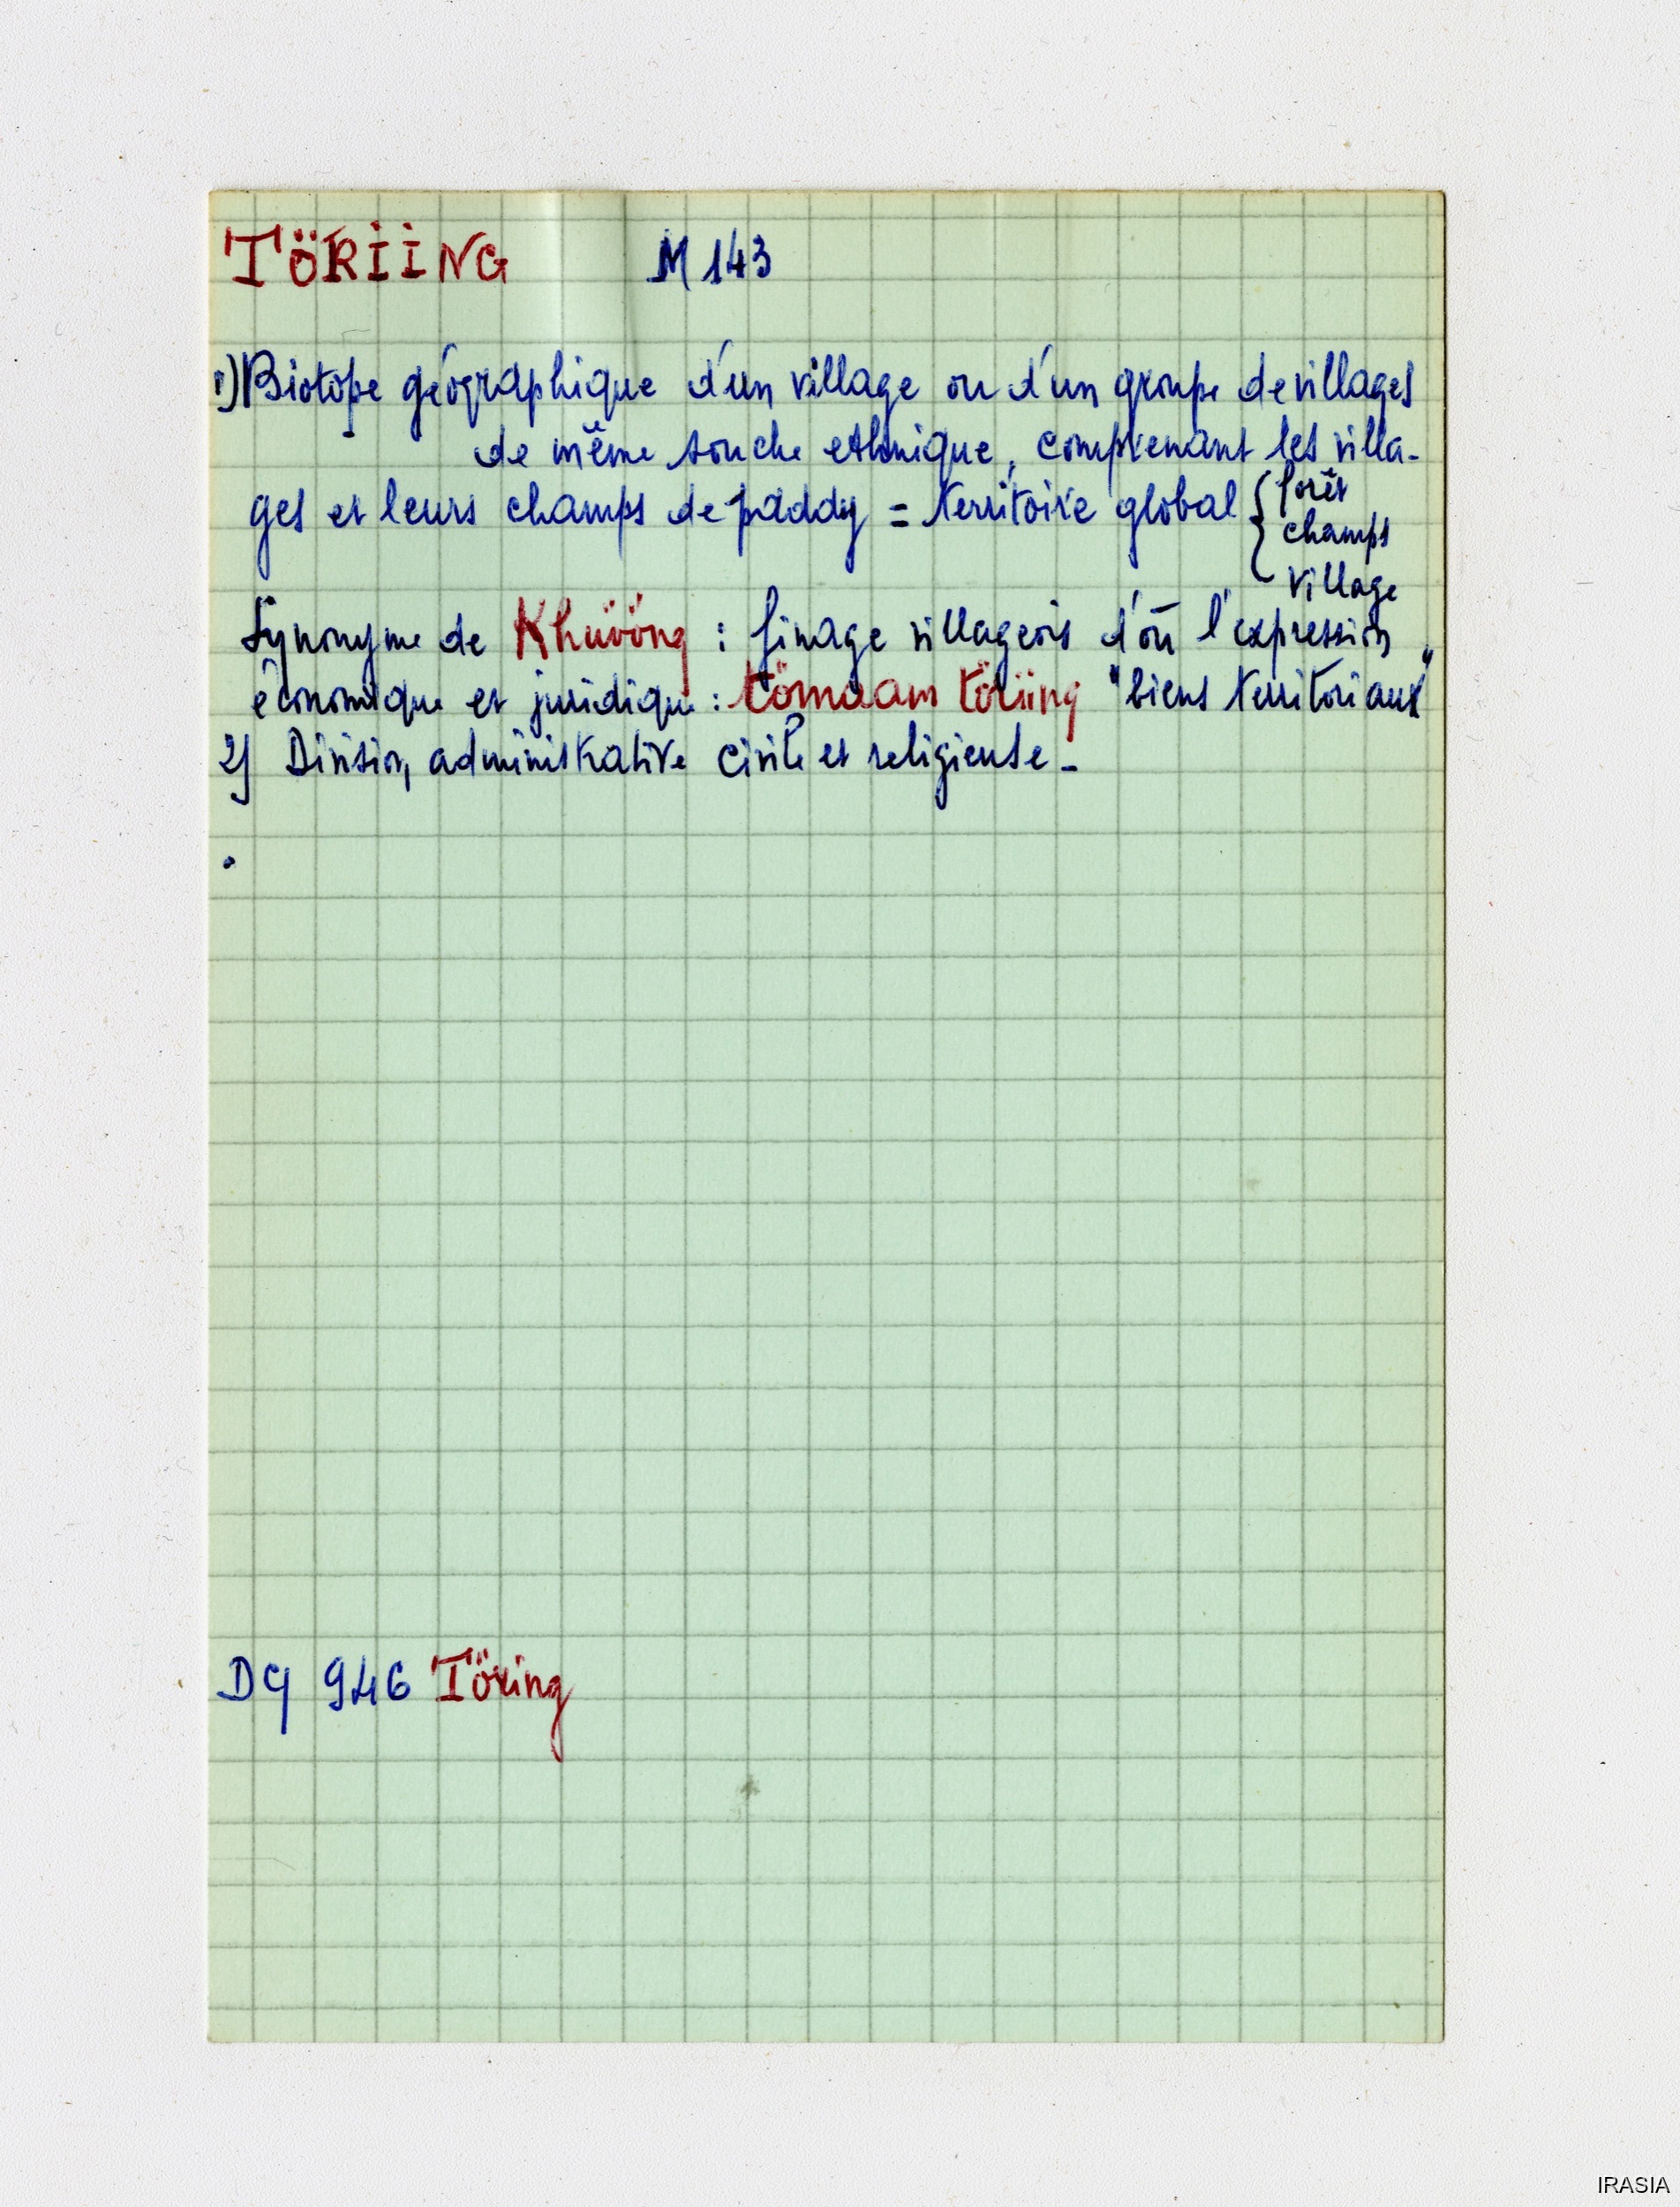 TÖRIING M 143
1) Biotope géographique d'un village ou d'un groupe de villages
de même souche ethnique, comprenant les villa-
ges et leurs champs de paddy = territoire global { forêt
champs
village
Synonyme de Khüööng : finage villageois d'où l'expression
économique et juridique : tömaam töriing "biens territoriaux"
2) Division administrative civile et religieuse -
DY 946 Töring
IRASIA